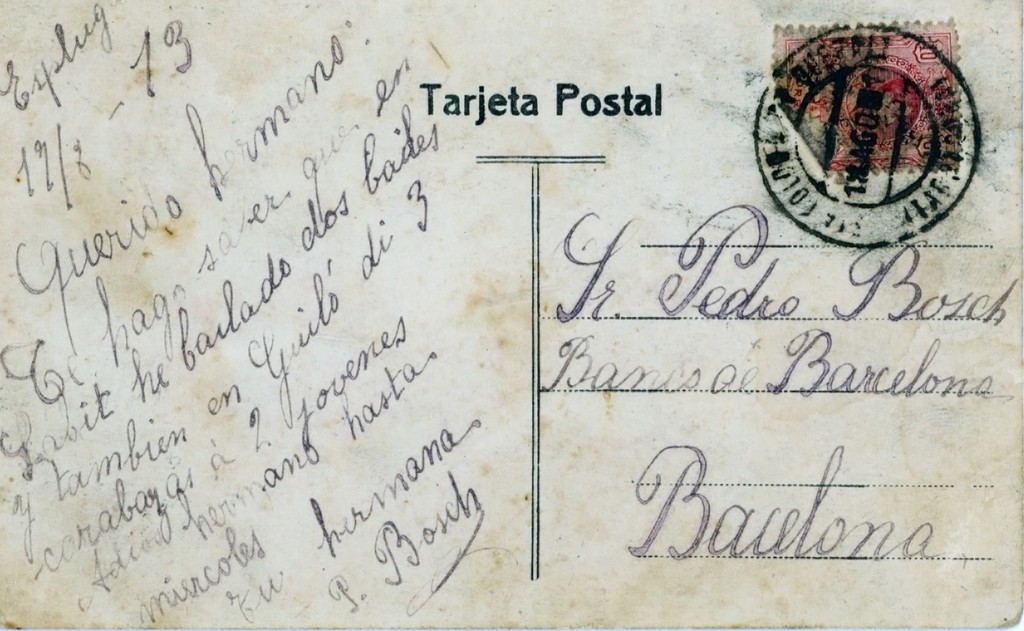 Esplug
17/8 - 13
Querido hermano:
Te hago saver que en
Labit he bailado dos bailes
y tambien en Guiló di 3
carabazas à 2 jovenes
Adios hermano hasta
miercoles
tu hermana
P. Bosch
Tarjeta Postal
Sr. Pedro Bosch
de Barcelona
Bacelona